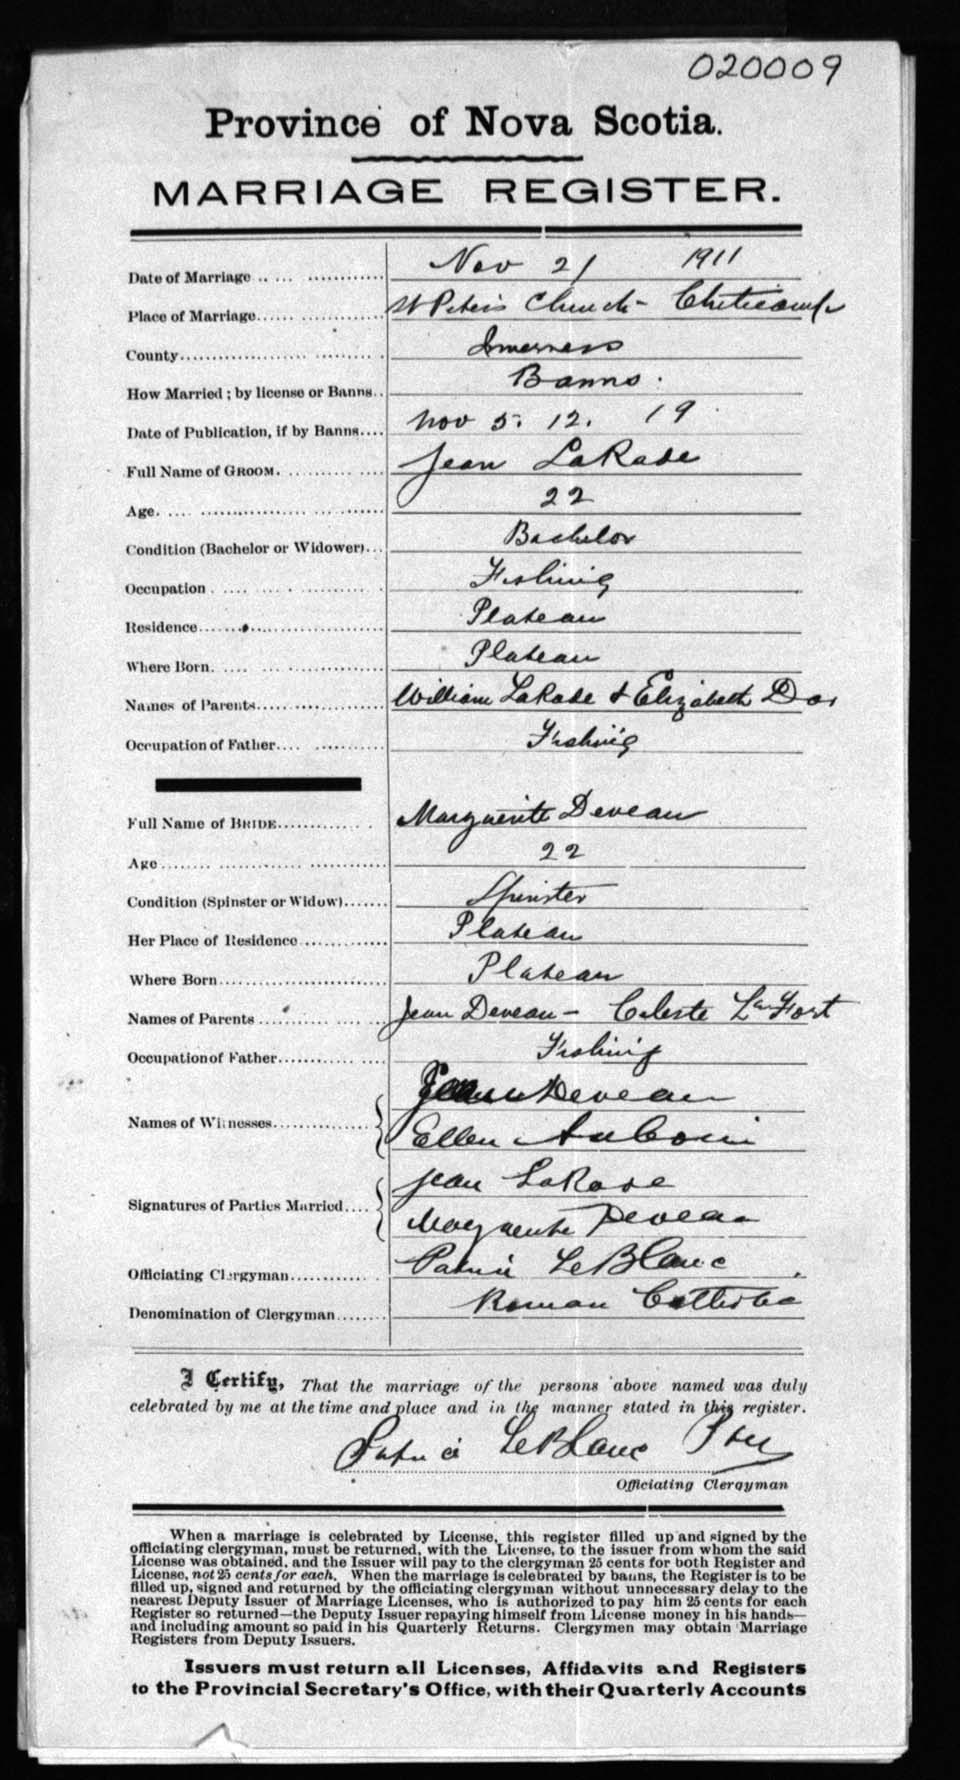 020009
Province of Nova Scotia.
MARRIAGE REGISTER.
Date of Marriage Nov 21 1911
Place of Marriage St Peter's Church - Cheticamp
County Inverness
How Married; by license or Banns Banns.
Date of Publication, if by Banns Nov 5. 12. 19
Full Name of GROOM. Jean LaRade
Age 22
Condition (Bachelor or Widower) Bachelor
Occupation Fishing
Residence Plateau
Where Born Plateau
Names of Parents William LaRade & Elizabeth
Occupation of Father Fishing
Full Name of BRIDE Marguerite Deveau
Age 22
Condition (Spinster or Widow) Spinster
Her Place of Residence Plateau
Where Born Plateau
Names of Parents Jean Deveau - Celeste LaFort
Occupation of Father Fishing
Names of Witnesses Jean Deveau
Ellen Aucoin
Signatures of Parties Married Jean LaRade
Marguerite Deveau
Officiating Clergyman LeBlanc
Denomination of Clergyman Roman Catholic
I Certify, That the marriage of the persons above named was duly
celebrated by me at the time and place and in the manner stated in this register.
LeBlanc
Officiating Clergyman
When a marriage is celebrated by License, this register filled up and signed by the
officiating clergyman, must be returned, with the License, to the issuer from whom the said
License was obtained, and the Issuer will pay to the clergyman 25 cents for both Register and
License, not 25 cents for each. When the marriage is celebrated by banns, the Register is to be
filled up, signed and returned by the officiating clergyman without unnecessary delay to the
nearest Deputy Issuer of Marriage Licenses, who is authorized to pay him 25 cents for each
Register so returned—the Deputy Issuer repaying himself from License money in his hands—
and including amount so paid in his Quarterly Returns. Clergymen may obtain Marriage
Registers from Deputy Issuers.
Issuers must return all Licenses, Affidavits and Registers
to the Provincial Secretary's Office, with their Quarterly Accounts